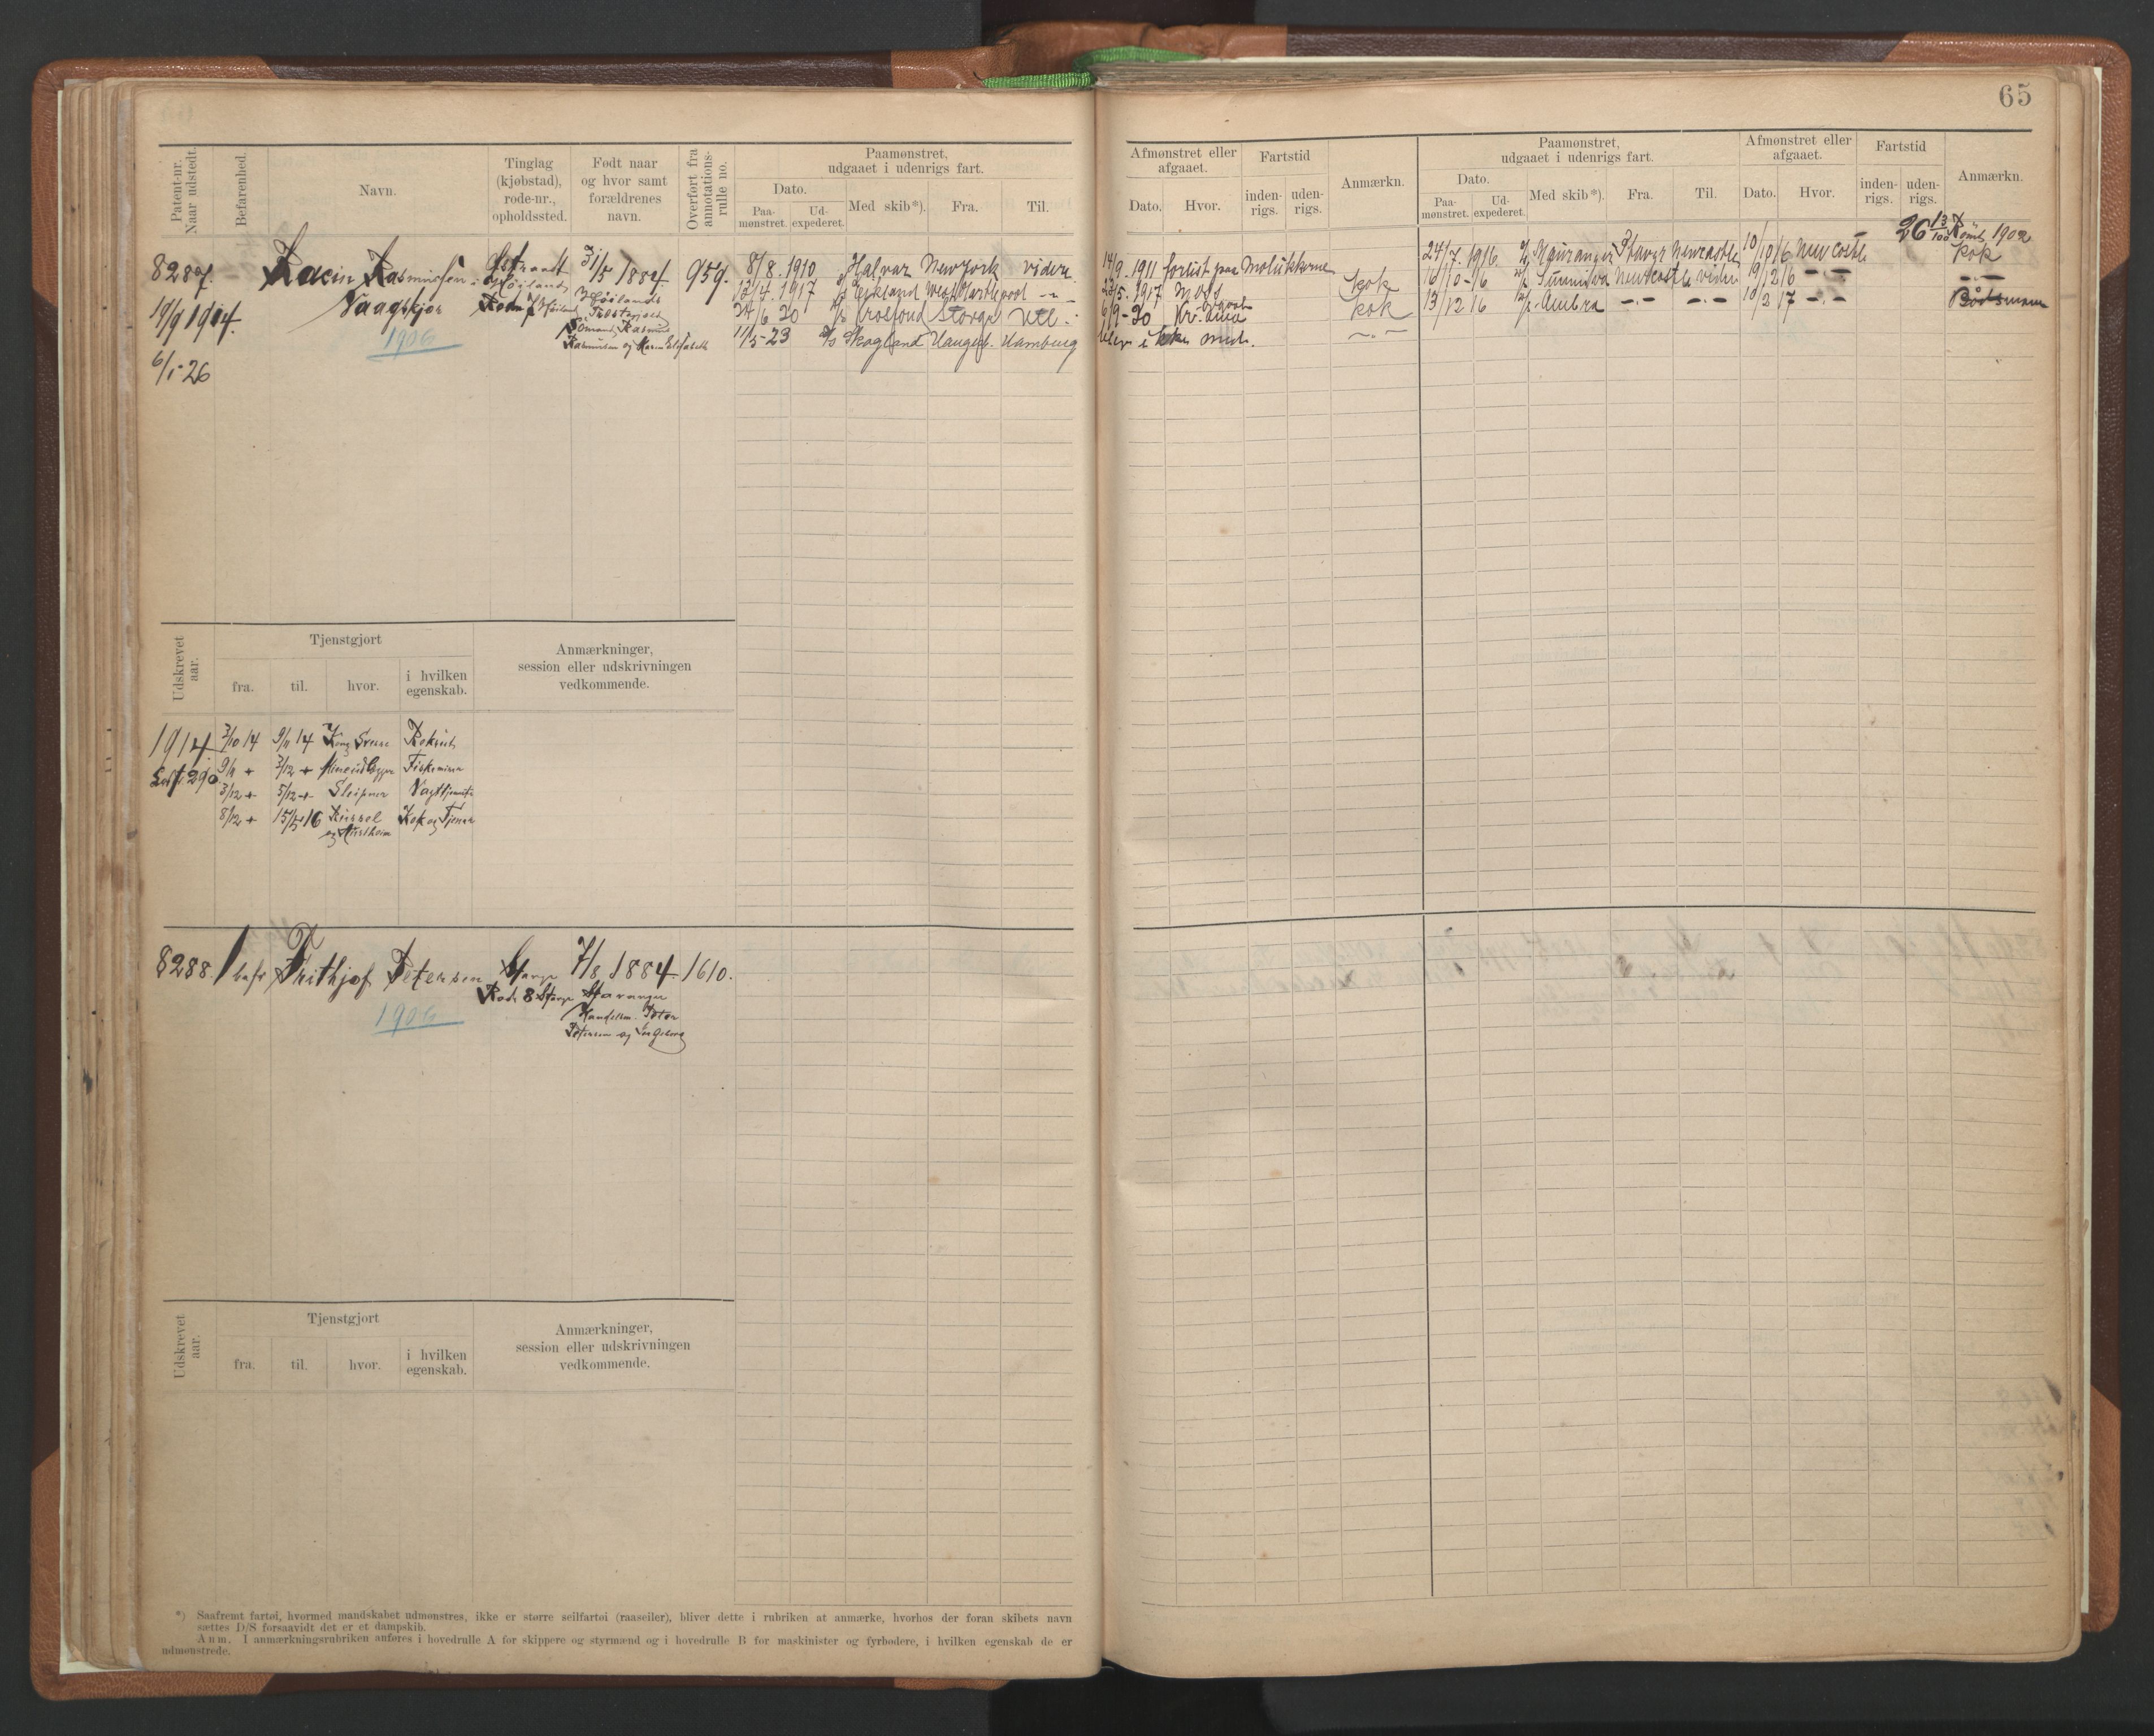 65
Patent-nr.
Naar udstedt.
Befarenhed.
Navn.
Tinglag
(kjøbstad),
rode-nr.,
opholdssted.
Født naar
og hvor samt
forældrenes
navn.
Overført fra
annotations-
rulle no.
Paamønstret,
udgaaet i udenrigs fart.
Dato.
Paa-
mønstret.
Ud-
expederet.
Med skib*).
Fra.
Til.
Afmønstret eller
afgaaet.
Dato.
Hvor.
Fartstid
inden-
rigs.
uden-
rigs.
Anmærkn.
Paamønstret,
udgaaet i udenrigs fart.
Dato.
Paa-
mønstret.
Ud-
expederet.
Med skib*).
Fra.
Til.
Afmønstret eller
afgaaet.
Dato.
Hvor.
Fartstid
inden-
rigs.
uden-
rigs.
Anmærkn.
8287.
19/9 1914.
6/1-26
Rasmussen
Vaagskjær
1906
Høiland
31/5 1884
Høilands
Rasmus
Rasmussen og Karen Elisabeth
959.
8/8. 1910 Halvar New York videre
13/4. 1917 West Hartlepool
24/6 20 Stavgr Utl.
11/5-23 D/S Skogland Hauges. Hamburg
14/9. 1911 forlist paa Molukkerne
23/5. 1917 Moss Kok
6/9-20 Kok
blev ikke med.
26 13/100 1902
24/7. 1916 Mauranger Stavgr Newcastle 10/10 16 Newcastle Kok
16/10-16 Sunniva Newcastle videre 19/12 16
13/12 16 Ambra 10/2 17 Bådsmann
Udskrevet
aar.
Tjenstgjort
fra.
til.
hvor.
i hvilken
egenskab.
Anmærkninger,
session eller udskrivningen
vedkommende.
1914 3/10 14 9/11 14 Kong Sverre Rekrut
9/11 3/12
3/12 5/12 Sleipner Vagttjeneste
8/12 15/5 16 Kok og Tjener
8288. Frithjof Petersen Stavgr 7/8 1884 1610.
Rode 8 Stavgr Stavanger
1906
Handelsm. Peter
Petersen og Ingeborg
Udskrevet
aar.
Tjenstgjort
fra.
til.
hvor.
i hvilken
egenskab.
Anmærkninger,
session eller udskrivningen
vedkommende.
*) Saafremt fartøi, hvormed mandskabet udmønstres, ikke er større seilfartøi (raaseiler), bliver dette i rubriken at anmærke, hvorhos der foran skibets navn
sættes D/S forsaavidt det er et dampskib.
Anm. I anmærkningsrubriken anføres i hovedrulle A for skippere og styrmænd og i hovedrulle B for maskinister og fyrbødere, i hvilken egenskab de er
udmønstrede.